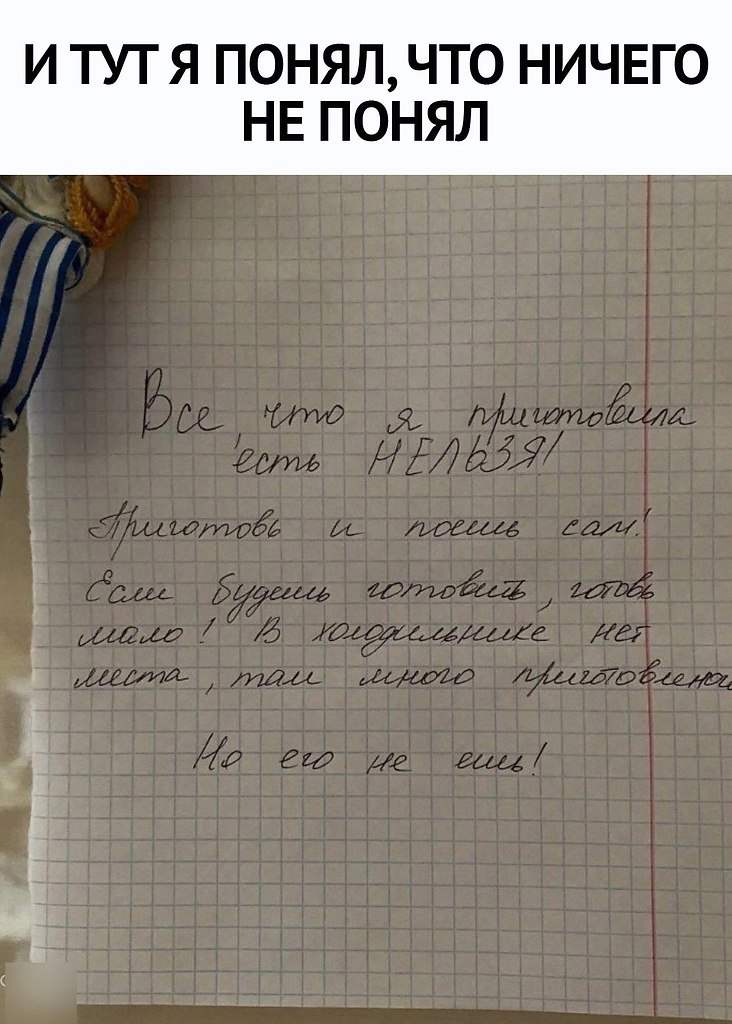 И ТУТ Я ПОНЯЛ, ЧТО НИЧЕГО
НЕ ПОНЯЛ
Все, что я приготовила
есть НЕЛЬЗЯ!
Приготовь и поешь сам!
Если будешь готовить, готовь
мало! В холодильнике нет
места, там много приготовлено
Но его не ешь!